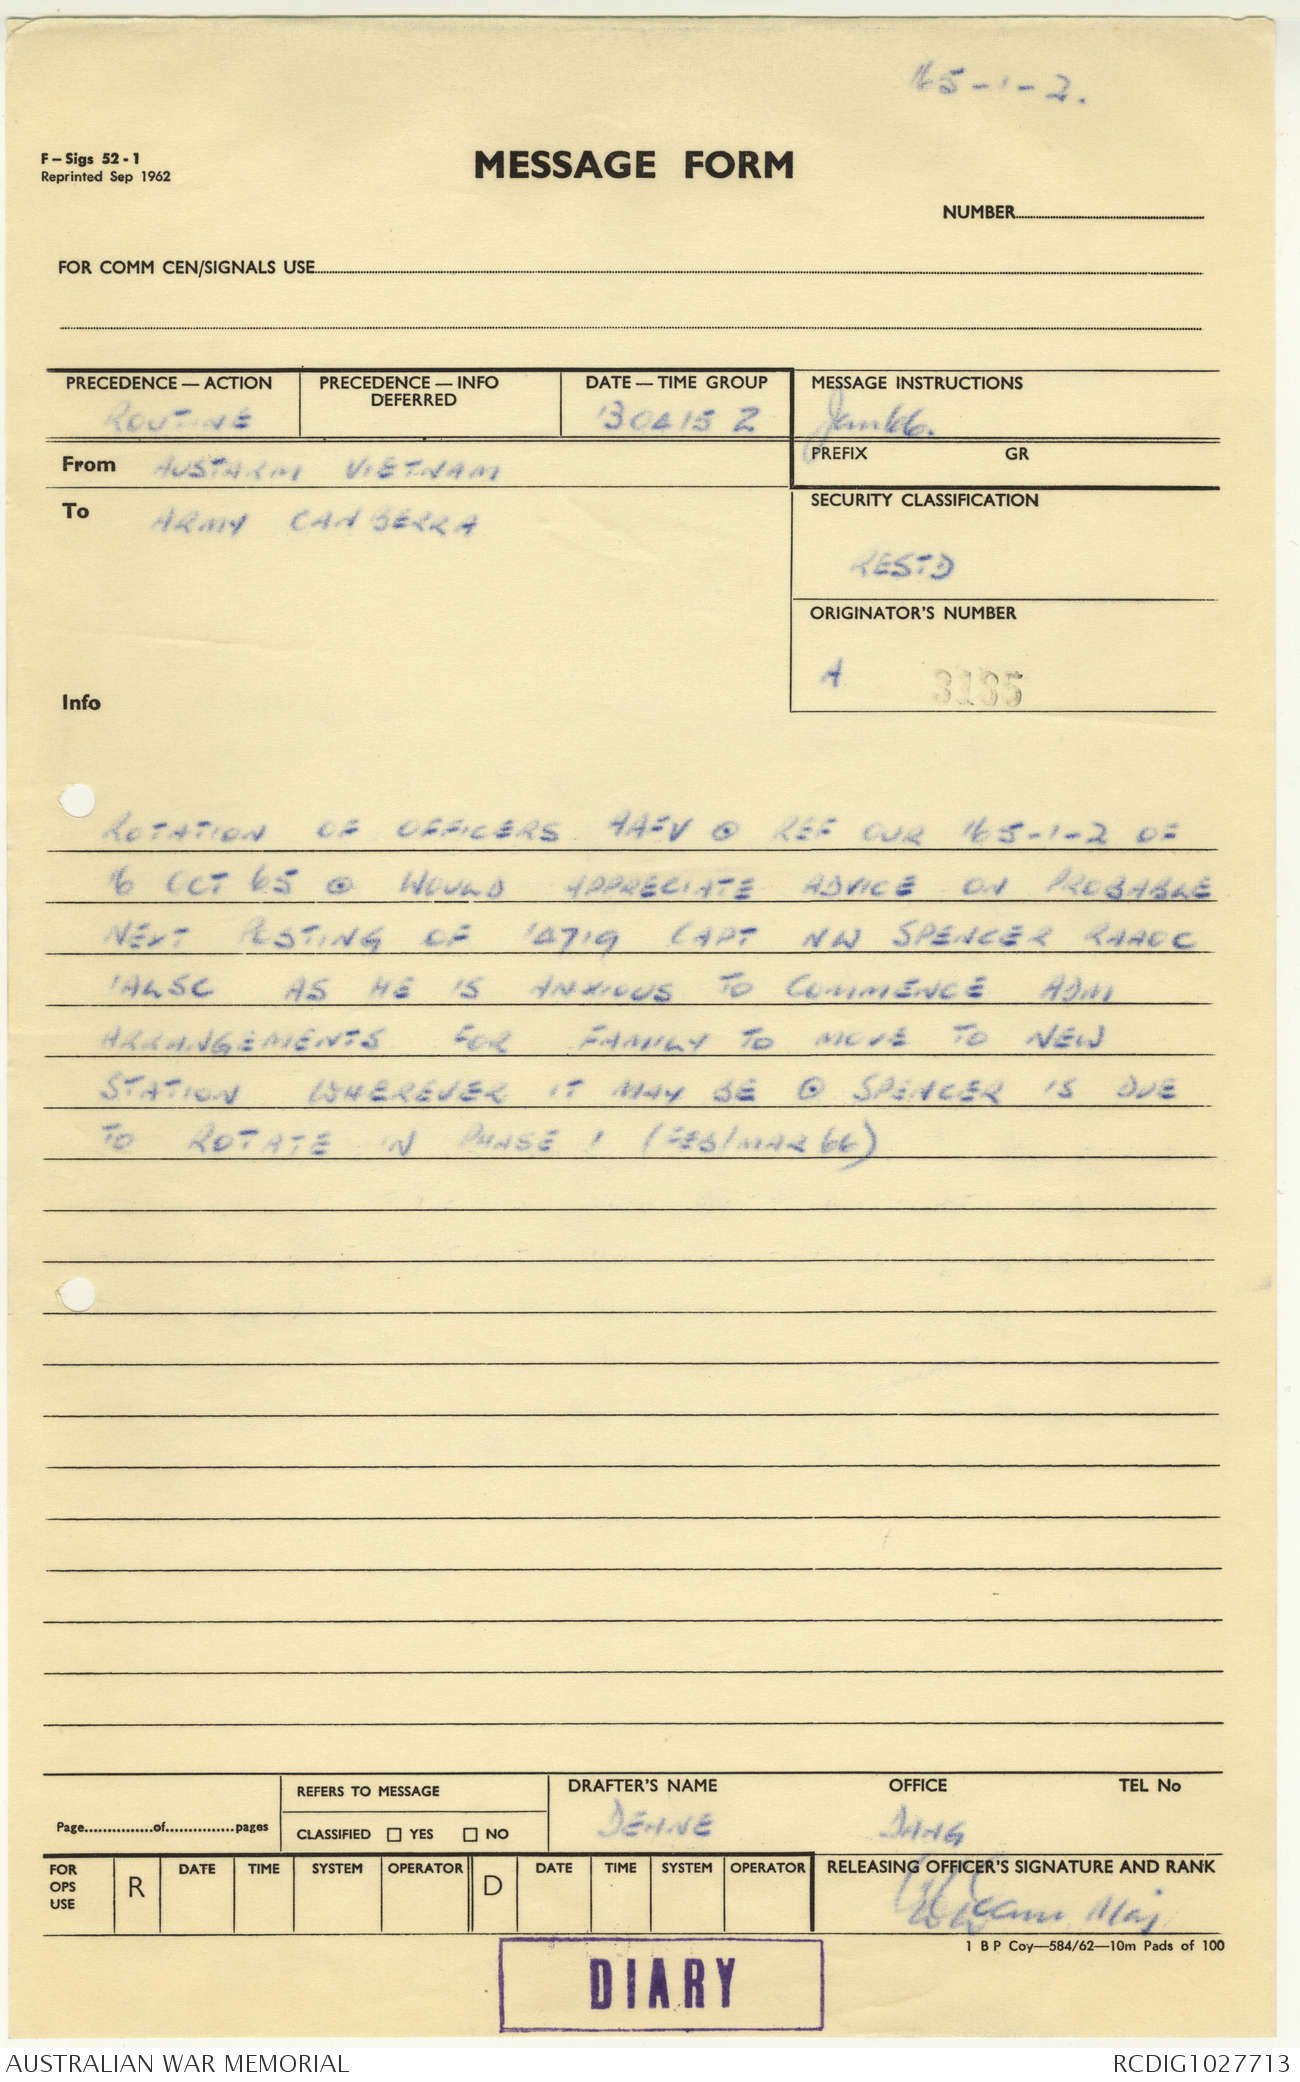 165-1-2.
F – Sigs 52 - 1
Reprinted Sep 1962
MESSAGE FORM
NUMBER
FOR COMM CEN/SIGNALS USE
PRECEDENCE — ACTION
ROUTINE
PRECEDENCE — INFO
DEFERRED
DATE — TIME GROUP
130415 Z
MESSAGE INSTRUCTIONS
Jan 66.
PREFIX GR
From AUSTARM VIETNAM
To ARMY CANBERRA
SECURITY CLASSIFICATION
RESTD
ORIGINATOR'S NUMBER
A 3135
Info
ROTATION OF OFFICERS AAFV ⊙ REF OUR 165-1-2 OF
16 OCT 65 ⊙ WOULD APPRECIATE ADVICE ON PROBABLE
NEXT POSTING OF 14719 CAPT NW SPENCER RAAOC
1ALSC AS HE IS ANXIOUS TO COMMENCE ADM
ARRANGEMENTS FOR FAMILY TO MOVE TO NEW
STATION WHEREVER IT MAY BE ⊙ SPENCER IS DUE
TO ROTATE IN PHASE 1 (FEB/MAR 66)
Page of pages
REFERS TO MESSAGE
CLASSIFIED YES NO
DRAFTER'S NAME OFFICE TEL No
DEHNE DAAG
FOR OPS USE R DATE TIME SYSTEM OPERATOR D DATE TIME SYSTEM OPERATOR
RELEASING OFFICER'S SIGNATURE AND RANK
Maj
1 B P Coy—584/62—10m Pads of 100
DIARY
AUSTRALIAN WAR MEMORIAL RCDIG1027713